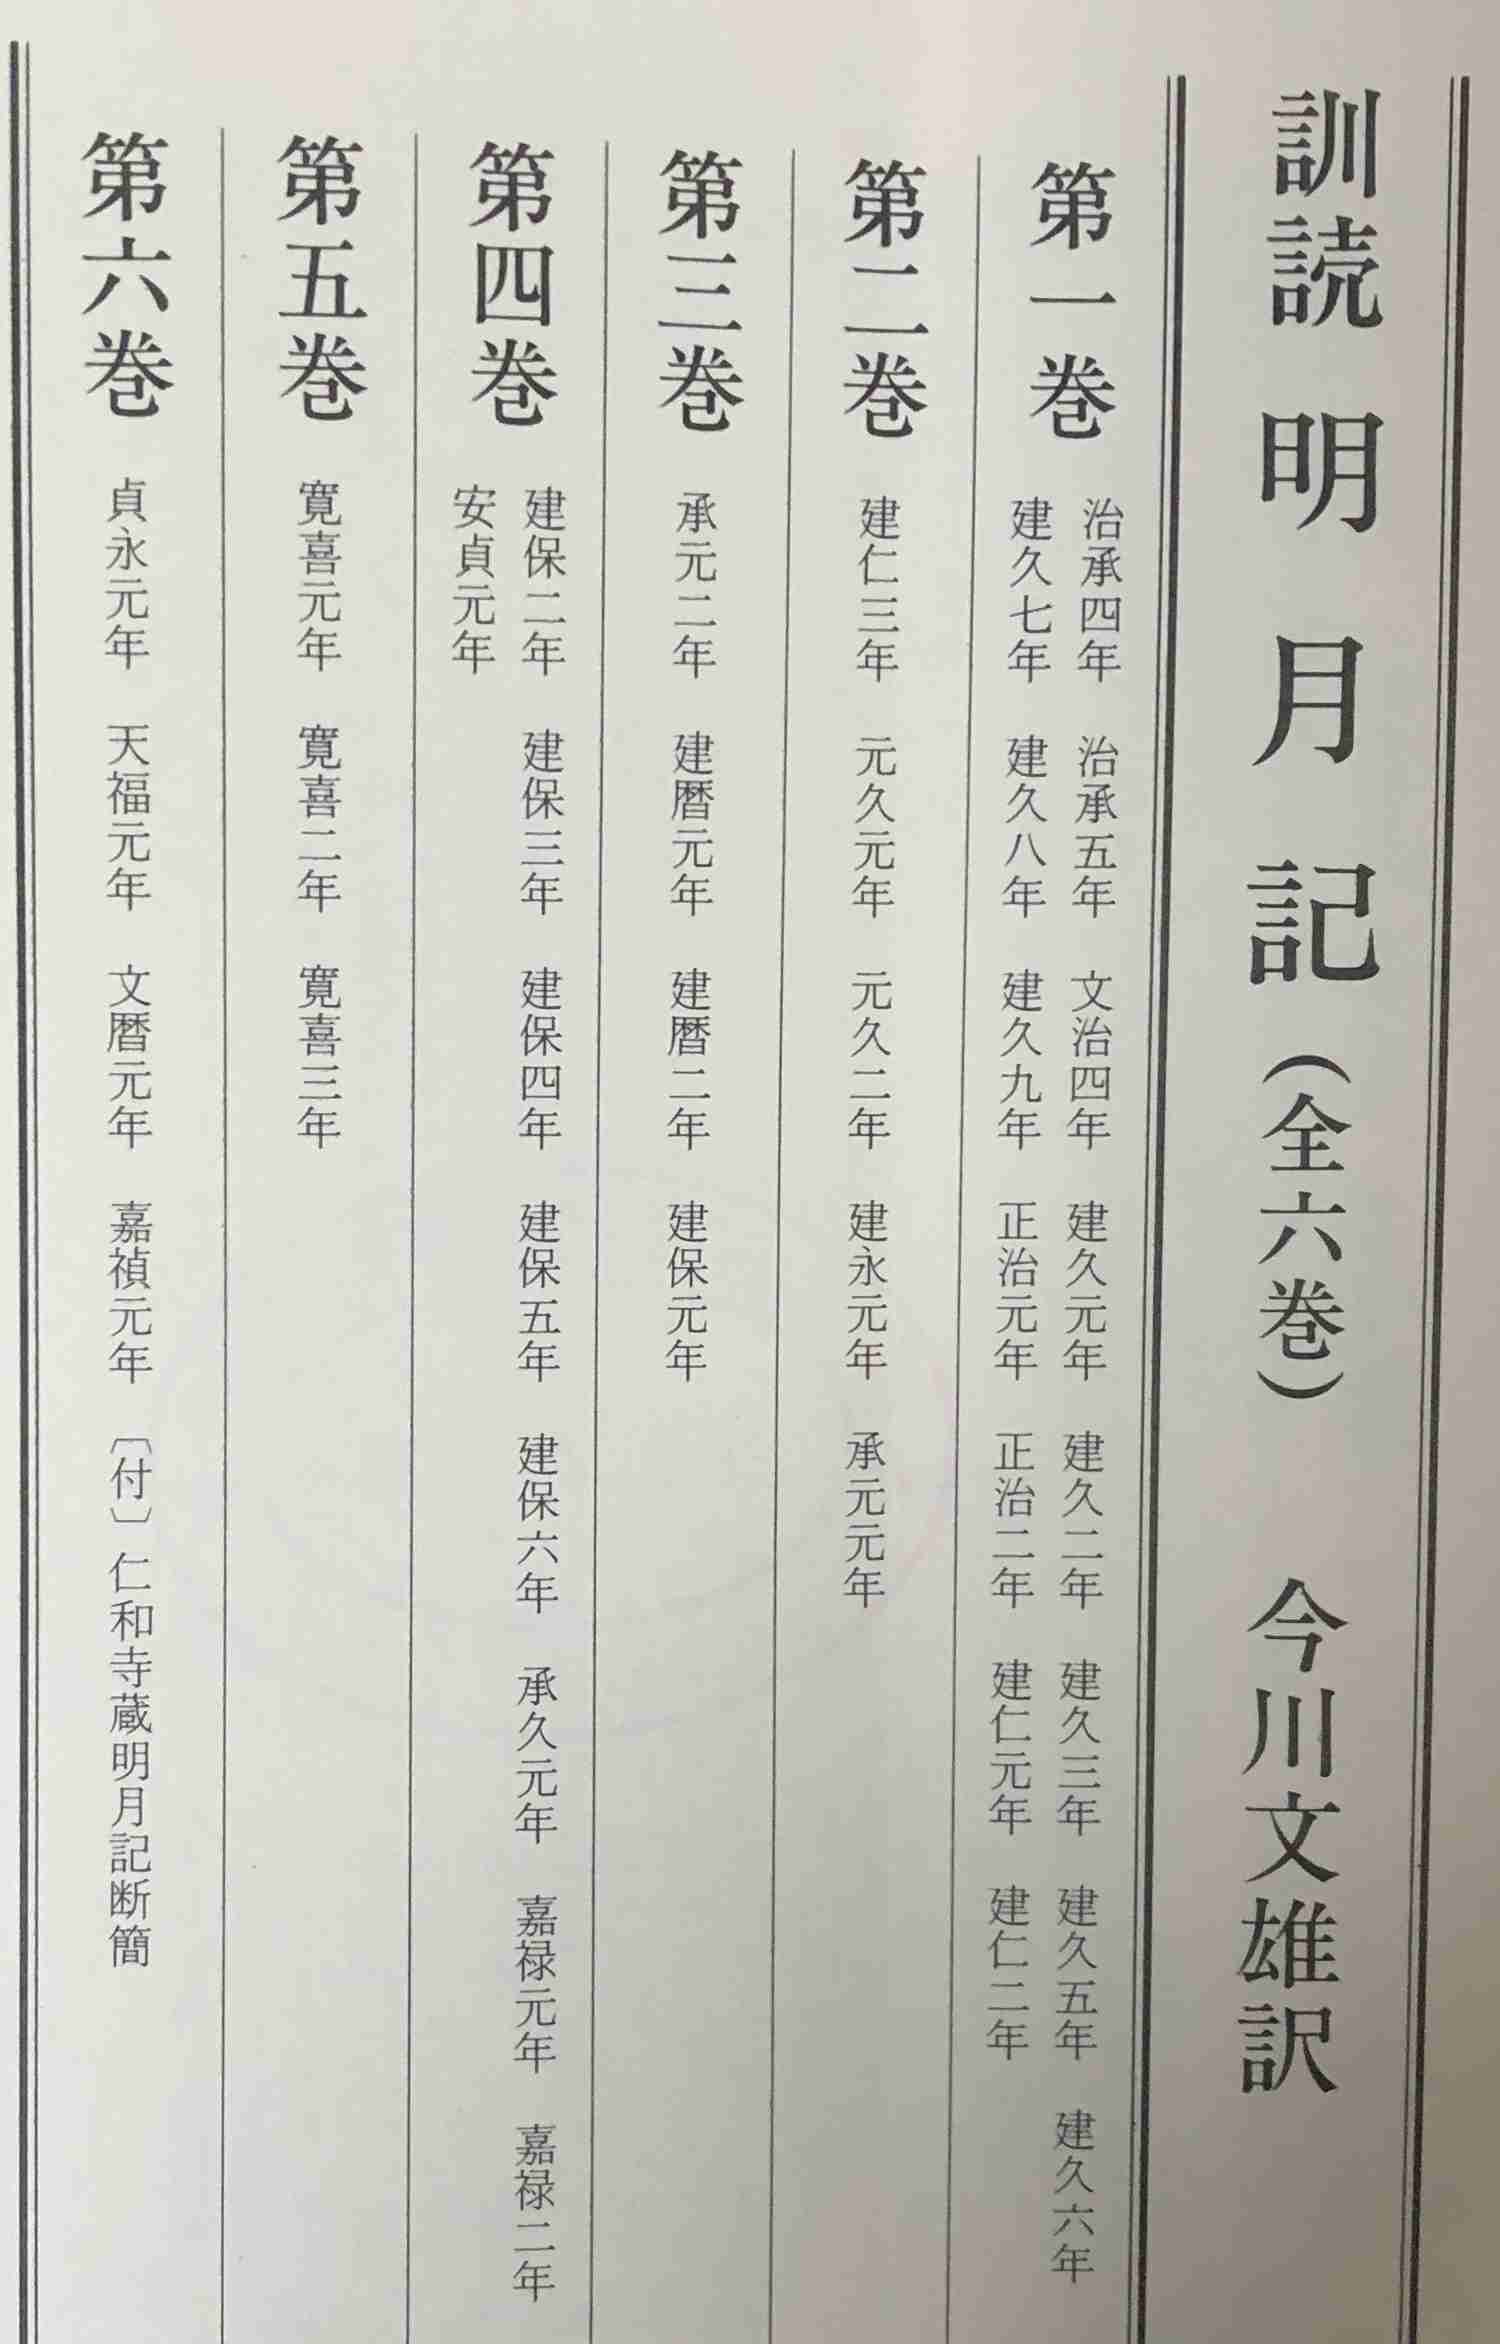 訓読 明月記（全六巻） 今川文雄訳
第一巻 治承四年 治承五年 文治四年 建久元年 建久二年 建久三年 建久五年 建久六年
建久七年 建久八年 建久九年 正治元年 正治二年 建仁元年 建仁二年
第二巻 建仁三年 元久元年 元久二年 建永元年 承元元年
第三巻 承元二年 建暦元年 建暦二年 建保元年
第四巻 建保二年 建保三年 建保四年 建保五年 建保六年 承久元年 嘉禄元年 嘉禄二年
安貞元年
第五巻 寛喜元年 寛喜二年 寛喜三年
第六巻 貞永元年 天福元年 文暦元年 嘉禎元年 〔付〕仁和寺蔵明月記断簡